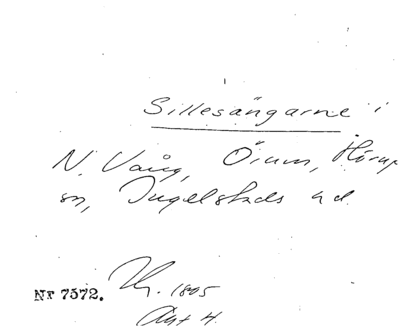 Sillesängarne i
N. Vång, Örum, Hörups
sn, Ingelstads hd.
Nr 7572. 1805
Akt 4.